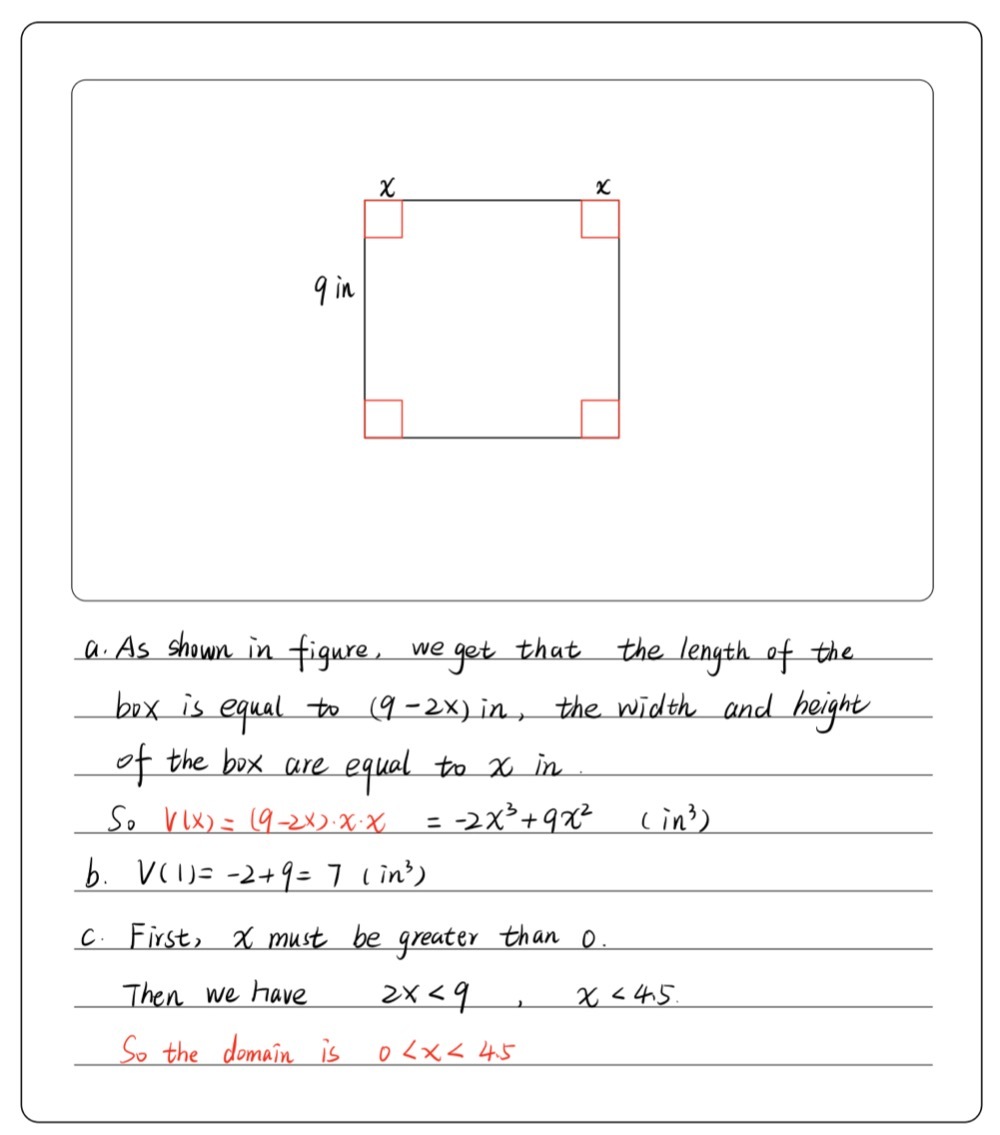 x x
9 in
a. As shown in figure, we get that the length of the
box is equal to (9-2x) in, the width and height
of the box are equal to x in.
So V(x) = (9-2x)·x·x = -2x³+9x² (in³)
b. V(1)= -2+9= 7 (in³)
c. First, x must be greater than 0.
Then we have 2x<9 , x<4.5.
So the domain is 0<x<4.5